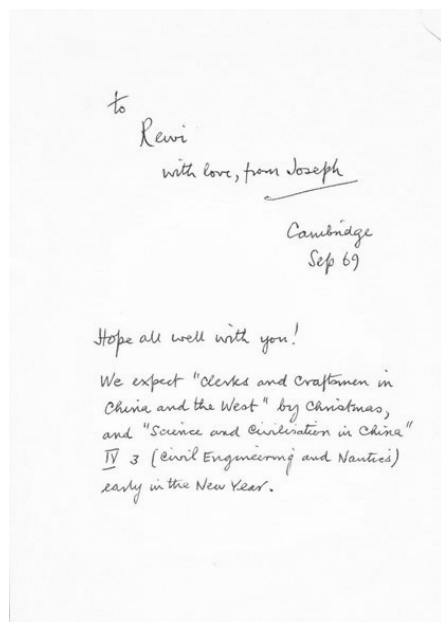 to
Rewi
with love, from Joseph
Cambridge
Sep 69
Hope all well with you!
We expect "Clerks and Craftsmen in
China and the West" by Christmas,
and "Science and Civilisation in China"
IV 3 (Civil Engineering and Nautics)
early in the New Year.